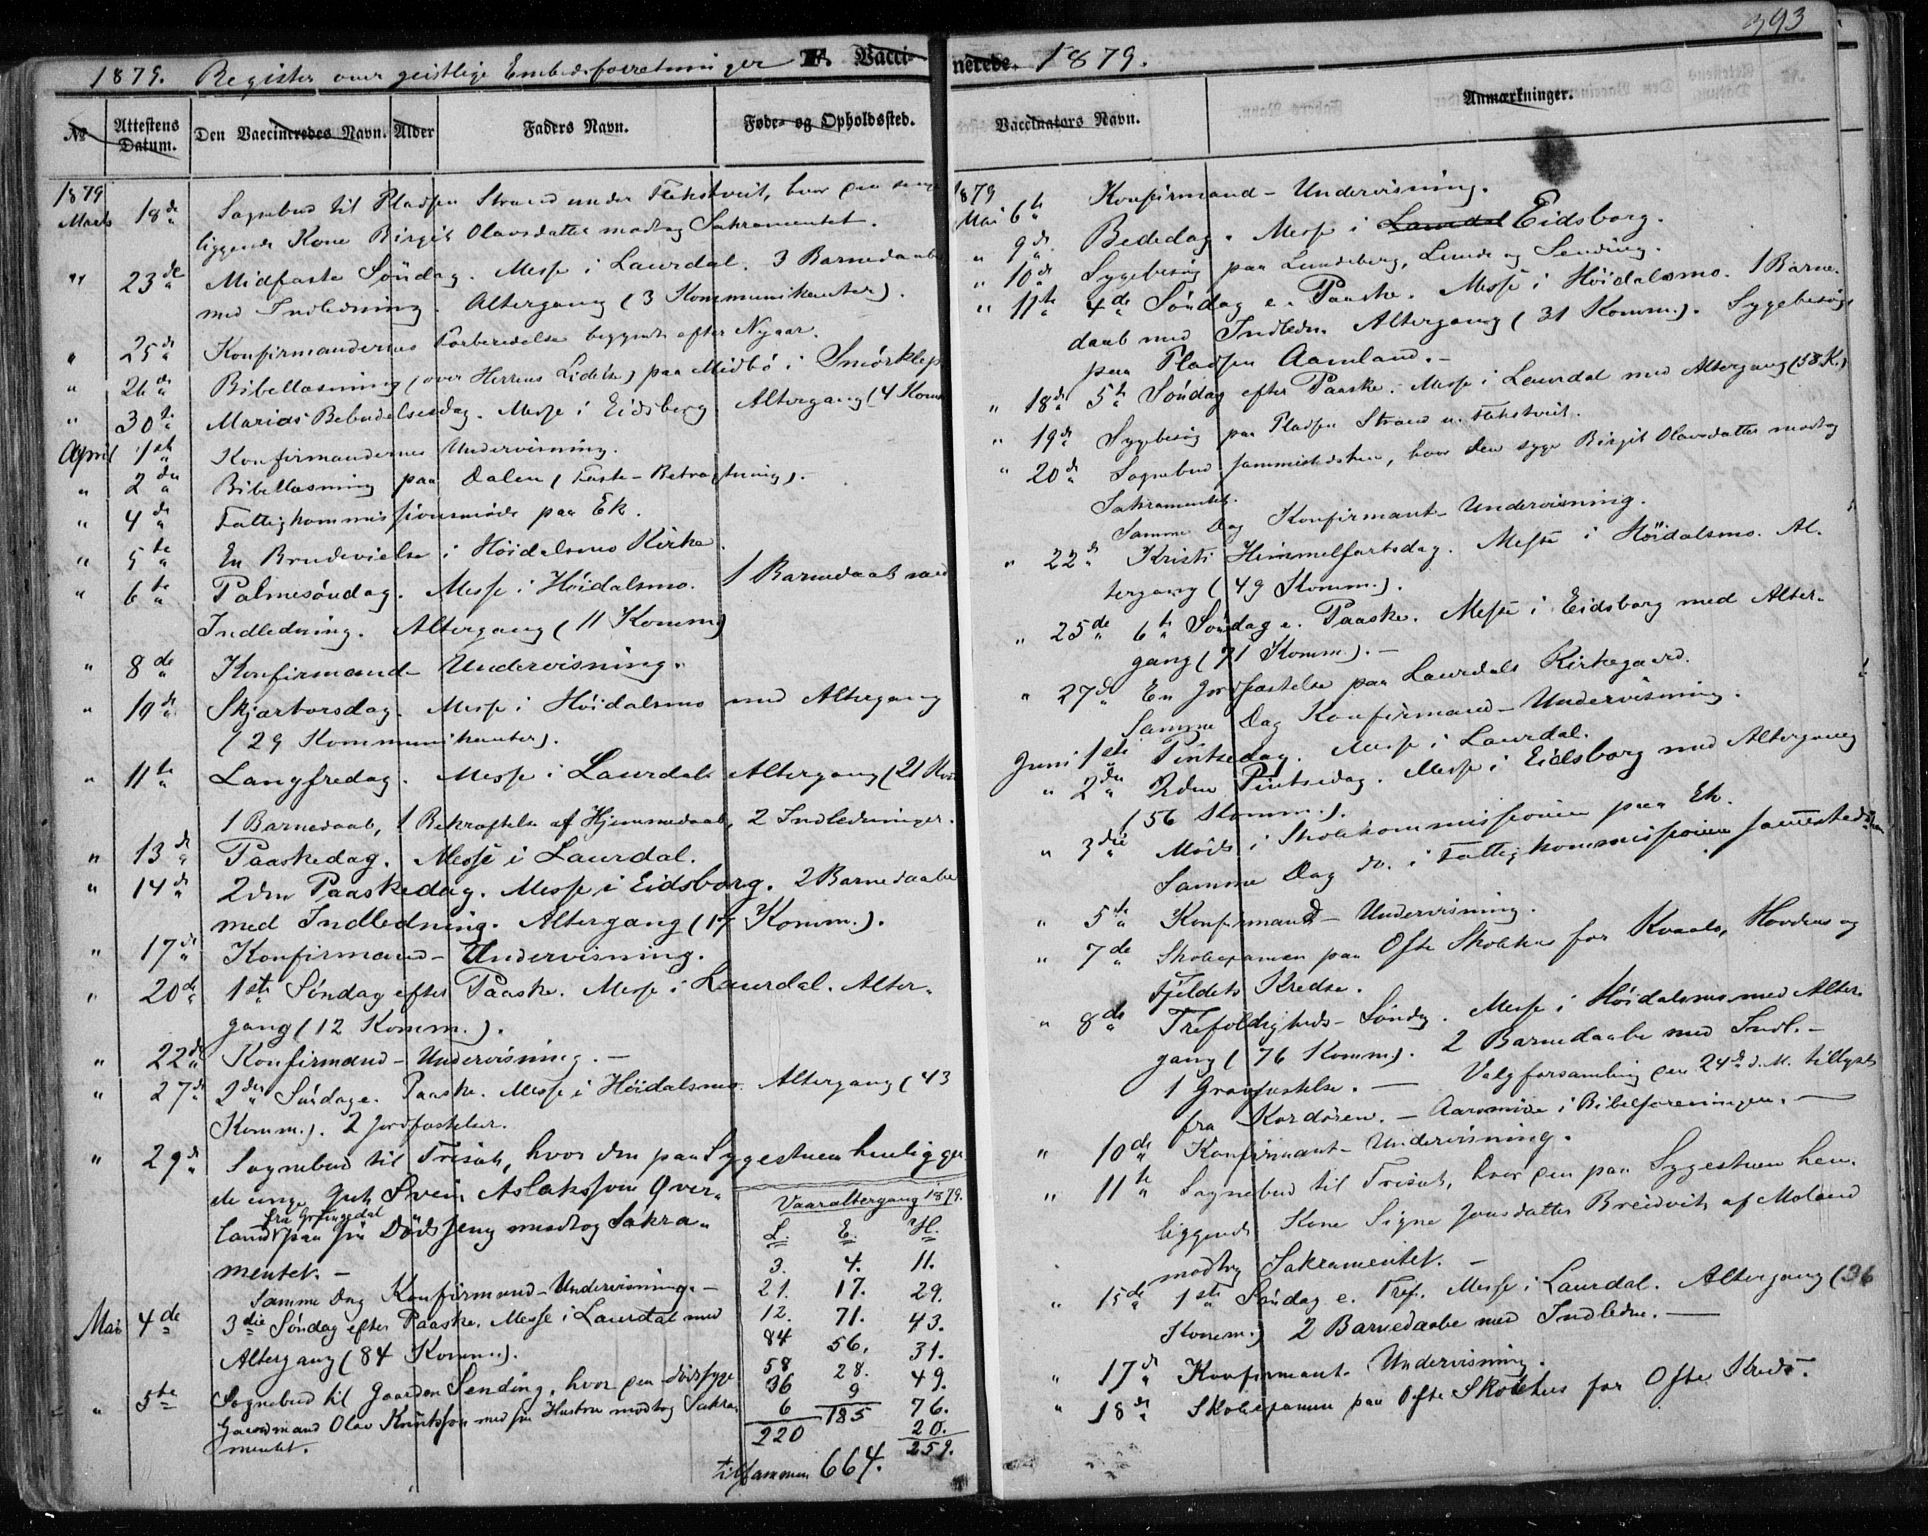 1879. Register over geistlige Embedsforretninger F. Vacci-
№ Attestens Datum. Den Vaccineredes Navn. Alder Faders Navn. Føde- og Opholdssted.
1879
Marts 18de Sognebud til Pladsen Strand under Flekstveit, hvor den
liggende Kone Birgit Olavsdatter modtog Sakramentet.
" 23de Midfaste Söndag. Messe i Laurdal. 3 Barnedaabe
med Indledning. Altergang (3 Kommunikanter).
" 25de Konfirmandernes Forberedelse beggynt efter Nyaar.
" 26de Bibellæsning (over Herrens Lidelse) paa Midbö i Smörklep
" 30te Mariæ Bebudelsesdag. Messe i Eidsborg. Altergang (4 Kom
April 1ste Konfirmandernes Undervisning.
" 2den Bibellæsning paa Dalen (Faste-Betragtning).
" 4de Fattigkommissionsmöde paa Ek.
" 5te En Brudevielse i Höidalsmo Kirke.
" 6te Palmesöndag. Messe i Höidalsmo. 1 Barnedaab med
Indledning. Altergang (11 Komm)
" 8de Konfirmand-Undervisning.
" 10de Skjærtorsdag. Messe i Höidalsmo med Altergang
(29 Kommunikanter).
" 11te Langfredag. Messe i Laurdal. Altergang (21 Kom
1 Barnedaab, 1 Bekræftelse af Hjemmedaab, 2 Indledninger.
" 13de Paaskedag. Messe i Laurdal.
" 14de 2den Paaskedag. Messe i Eidsborg. 2 Barnedaabe
med Indledning. Altergang (17 Komm.).
" 17de Konfirmand-Undervisning.
" 20de 1ste Söndag efter Paaske. Messe i Laurdal. Alter-
gang (12 Komm.).
" 22de Konfirmand-Undervisning. —
" 27de 2den Söndag e. Paaske. Messe i Höidalsmo. Altergang (43
Komm.). 2 Jordfæstelser.
" 29de Sognebud til Trisæt, hvor den paa Sygestuen henliggen
de unge Gut Svein Aslaksson Qver-
fra Grungedal
land paa sin Dödsseng modtog Sakra-
mentet. —
Samme Dag Konfirmand-Undervisning. —
Mai 4de 3die Söndag efter Paaske. Messe i Laurdal med
Altergang (84 Komm.).
" 5te Sognebud til Gaarden Sending, hvor den dödssyge
Gaardmand Olav Knutsson med sin Hustru modtog Sakra-
mentet.
Vaaraltergang 1879.
L. E. H.
3. 4. 11.
21. 17. 29.
12. 71. 43.
84 56. 31.
58 28. 49.
36 9 76.
6 185 20.
220 259.
tilsammen 664.
393
nerede. 1879.
Vaccinators Navn. Anmærkninger.
1879
Mai 6te Konfirmand-Undervisning.
" 9de Bededag. Messe i Laurdal Eidsborg.
" 10de Sygebesög paa Lundeberg, Lunde og Sending.
" 11te 4de Söndag e. Paaske. Messe i Höidalsmo. 1 Barne-
daab med Indledn. Altergang (31 Komm.). Sygebesög
paa Pladsen Aamland. —
" 18de 5te Söndag efter Paaske. Messe i Laurdal med Altergang (58 K.)
" 19de Sygebesög paa Pladsen Strand u. Flekstveit.
" 20de Sognebud sammesteds, hvor den syge Birgit Olavsdatter modtog
Sakramentet.
Samme Dag Konfirmant-Undervisning.
" 22de Kristi Himmelfartsdag. Messe i Höidalsmo. Al-
tergang (49 Komm.).
" 25de 6te Söndag e. Paaske. Messe i Eidsborg med Alter-
gang (71 Komm.). —
" 27de En Jordfæstelse paa Laurdals Kirkegaard.
Samme Dag Konfirmand-Undervisning.
Juni 1ste Pintsedag. Messe i Laurdal.
" 2den 2den Pintsedag. Messe i Eidsborg med Altergang
(56 Komm.).
" 3die Möde i Skolekommissionen paa Ek.
Samme Dag do. i Fattigkommissionen sammesteds
" 5te Konfirmand-Undervisning.
" 7de Skoleexamen paa Ofte Skolehus for Kvaale, Hovdens og
Fjeldets Kredse.
" 8de Trefoldigheds-Söndag. Messe i Höidalsmo med Alter-
gang (76 Komm). 2 Barnedaabe med Indl. —
1 Gravfæstelse. — Valgforsamling den 24de d. M. tillyst
fra Kordören. — Aarsmöde i Bibelforeningen. —
" 10de Konfirmant-Undervisning.
" 11te Sognebud til Trisæt, hvor den paa Sygestuen hen-
liggende Kone Signe Jonsdatter Breidvik af Moland
modtog Sakramentet. —
" 15de 1ste Söndag e. Tref. Messe i Laurdal. Altergang (36
Komm.) 2 Barnedaabe med Indledn. —
" 17de Konfirmant-Undervisning.
" 18de Skoleexamen paa Ofte Skolehus for Ofte Kreds.